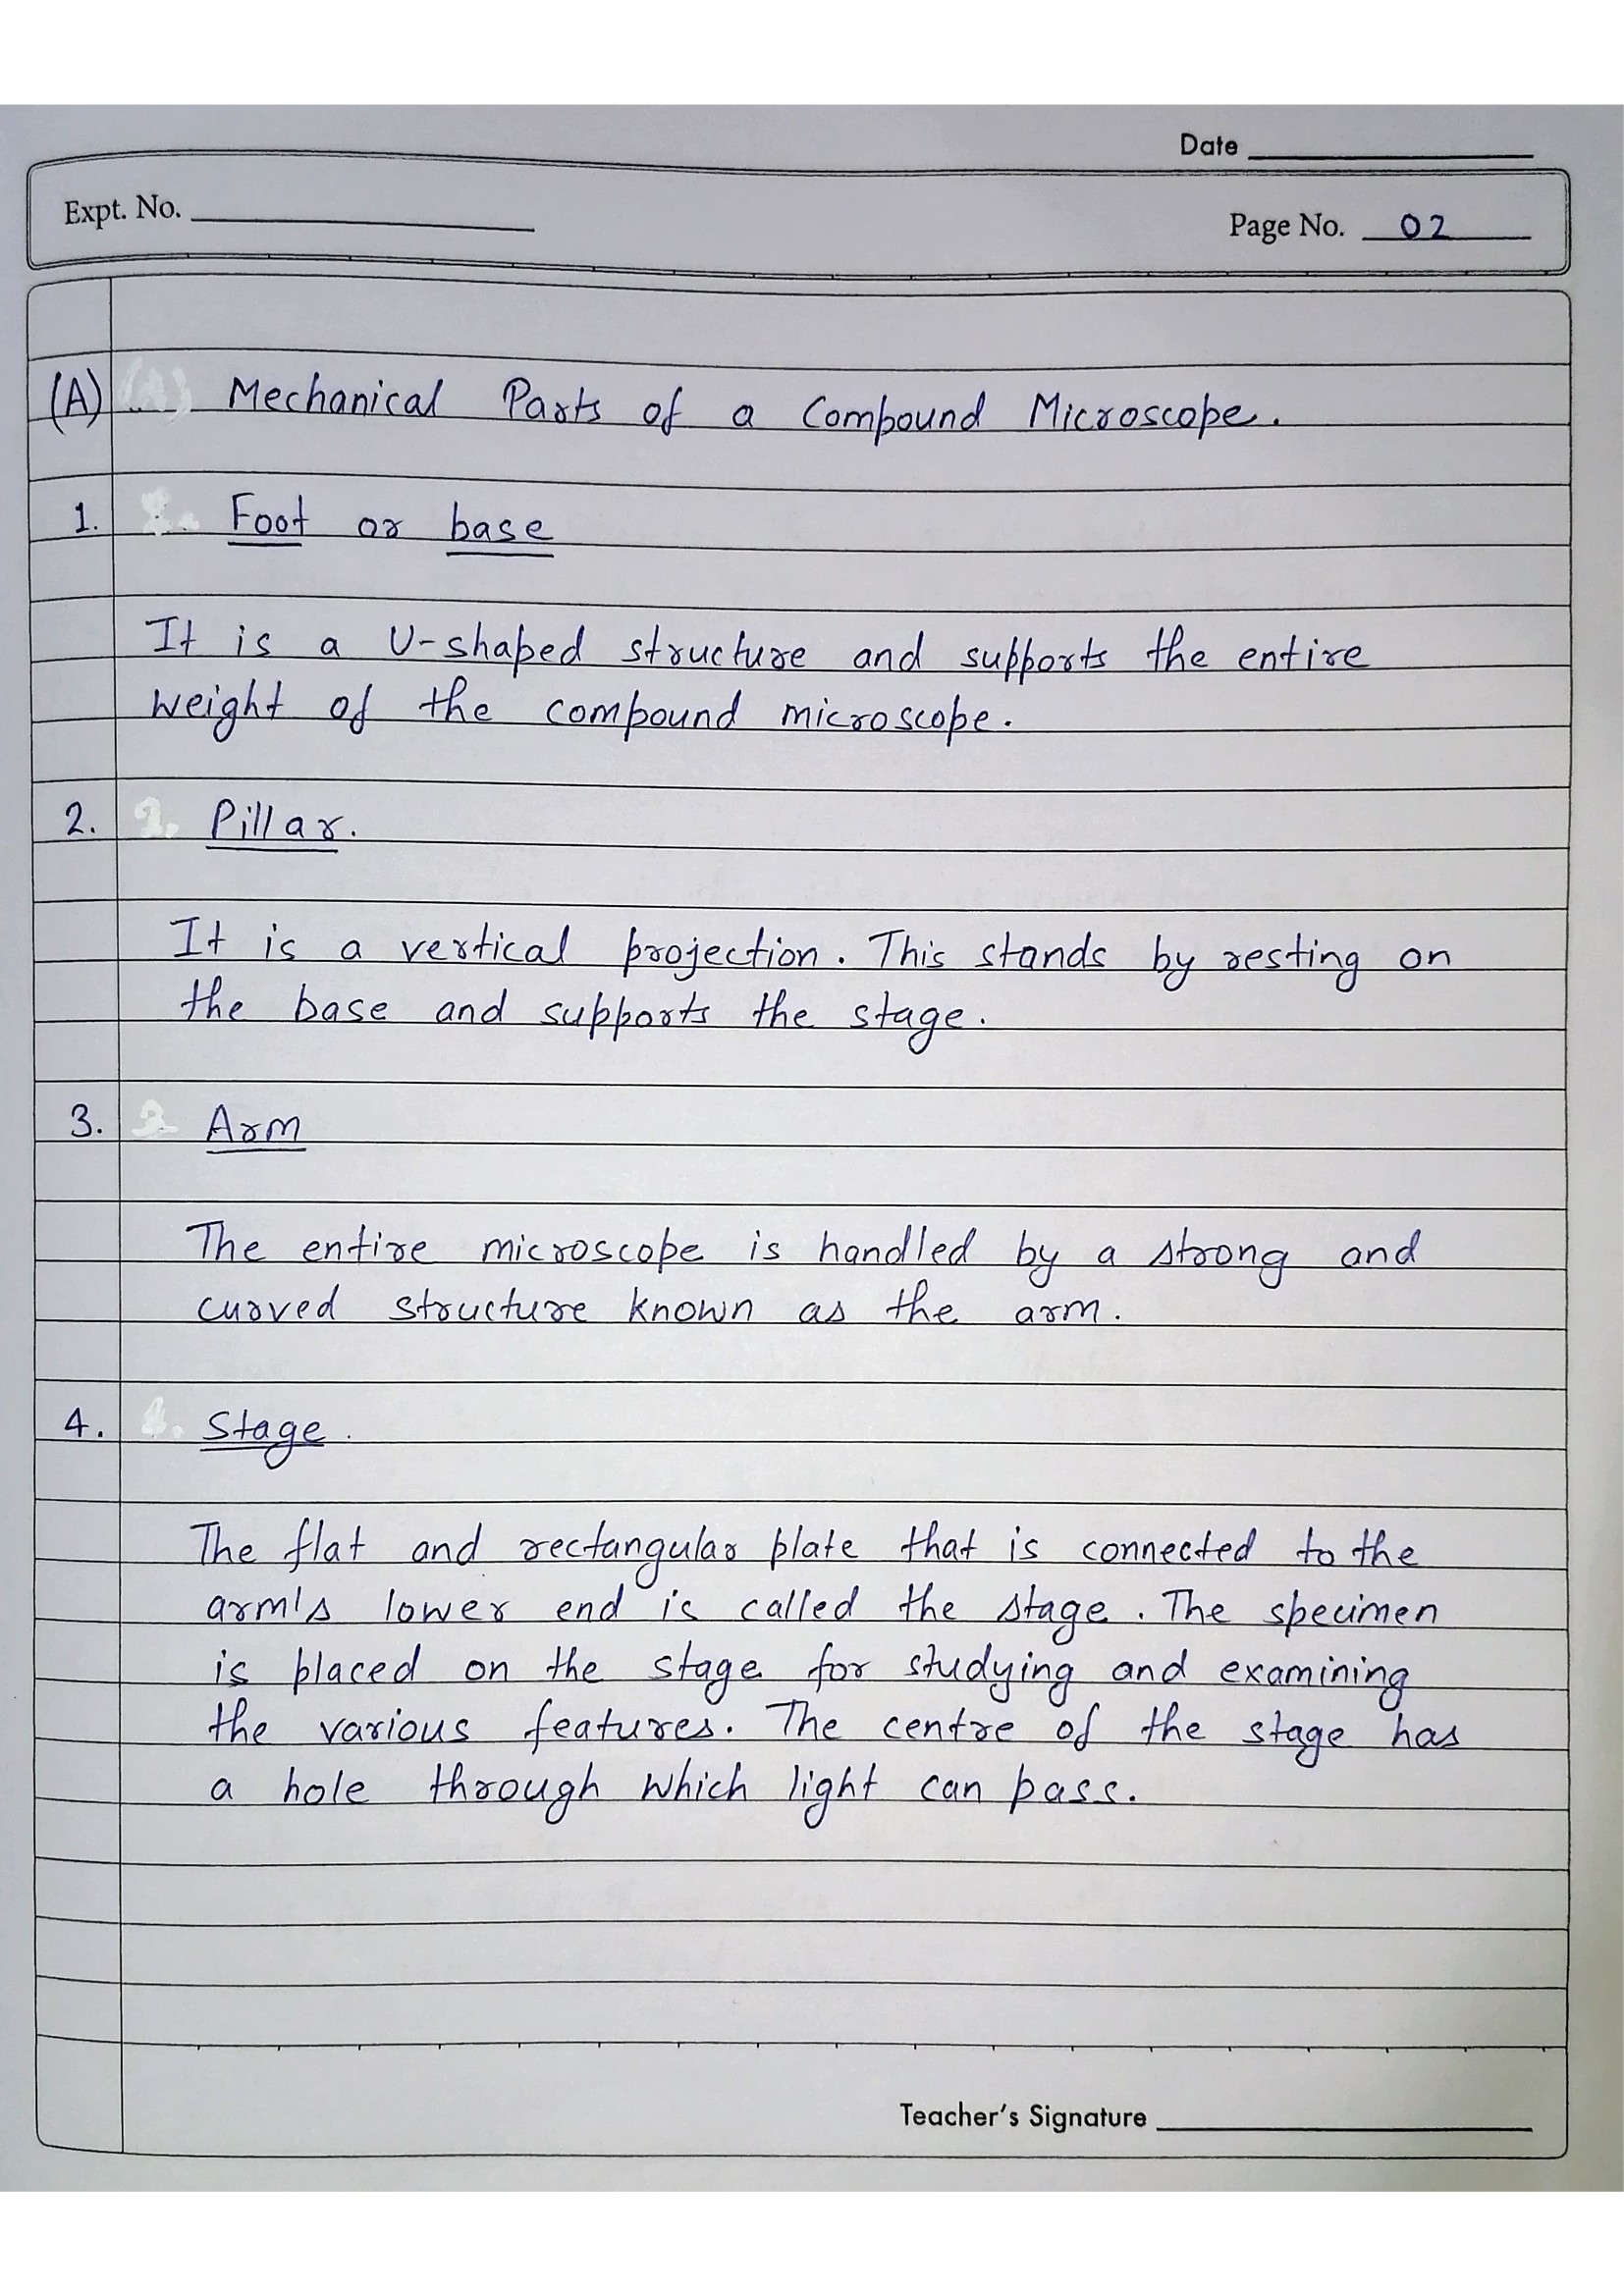 Date
Expt. No.
Page No. 02
(A) Mechanical Parts of a Compound Microscope.
1. Foot or base
It is a U-shaped structure and supports the entire
weight of the compound microscope.
2. Pillar.
It is a vertical projection. This stands by resting on
the base and supports the stage.
3. Arm
The entire microscope is handled by a strong and
curved structure known as the arm.
4. Stage.
The flat and rectangular plate that is connected to the
arm's lower end is called the stage. The specimen
is placed on the stage for studying and examining
the various features. The centre of the stage has
a hole through which light can pass.
Teacher's Signature